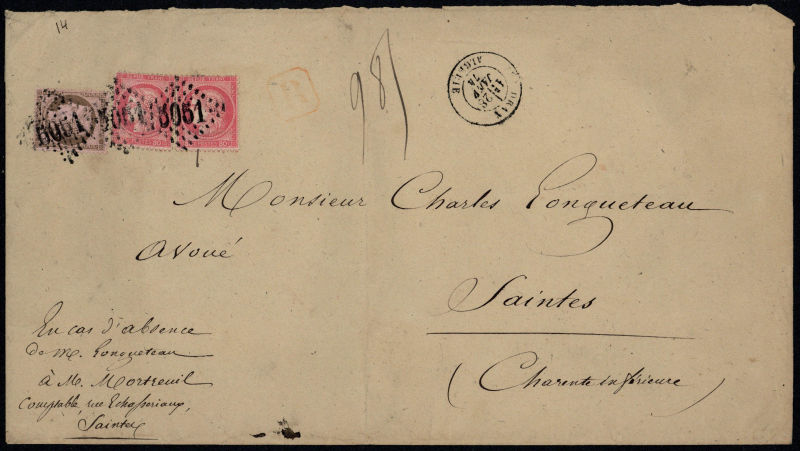 14
5051 5051 5051
98
ORAN
1E
28
JANV
74
ALGERIE
Monsieur Charles Longueteau
avoué
Saintes
(Charente inférieure)
En cas d'absence
de M. Longueteau
à M. Mortreuil
Comptable, rue
Saintes